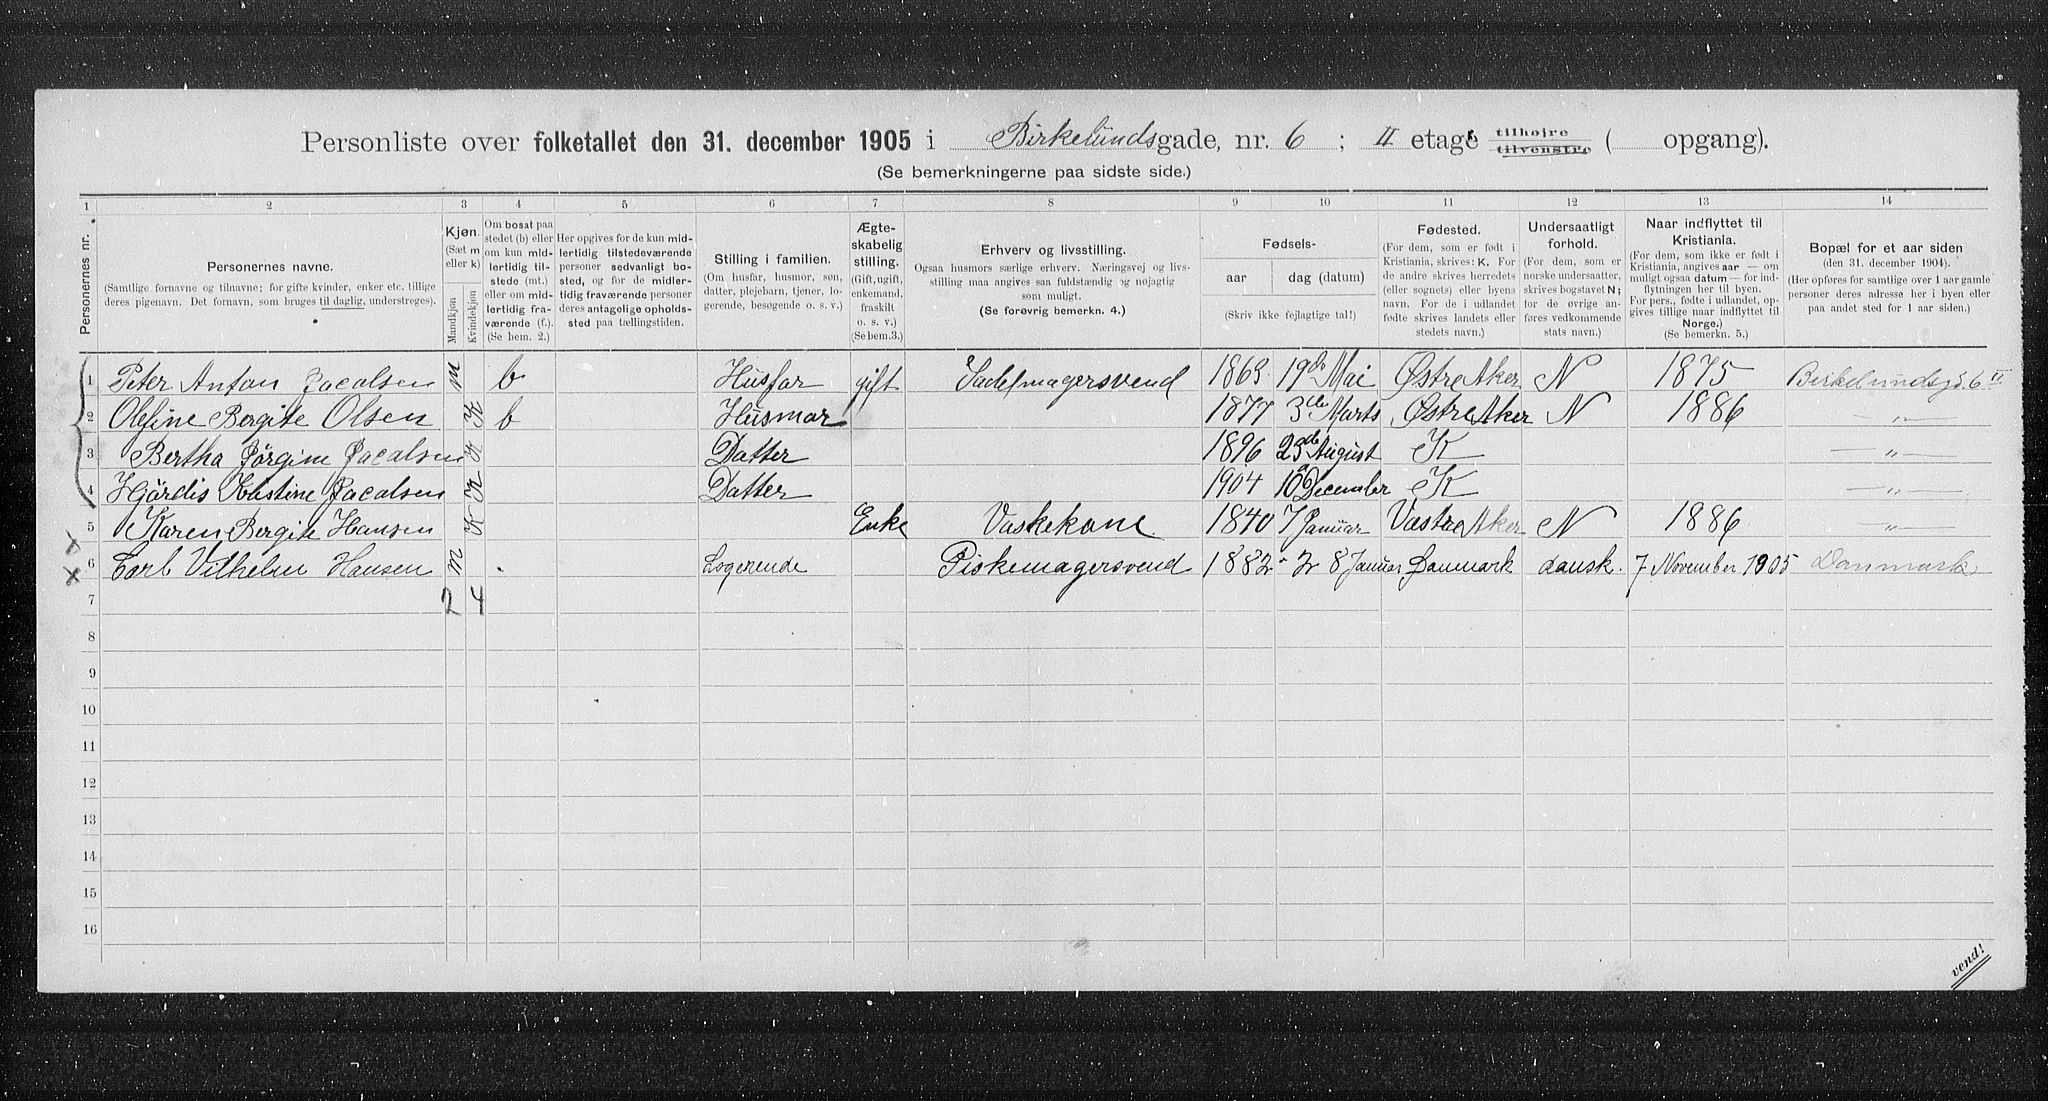 Personliste over folketallet den 31. december 1905 i Birkelundsgade, nr. 6 ; II etage tilhøjre tilvenstre ( opgang).
(Se bemerkningerne paa sidste side.)
1 2 3 4 5 6 7 8 9 10 11 12 13 14
Personernes nr.
Personernes navne.
(Samtlige fornavne og tilnavne; for gifte kvinder, enker etc. tillige
deres pigenavn. Det fornavn, som bruges til daglig, understreges).
Kjøn.
(Sæt m
eller k)
Mandkjøn
Kvindekjøn
Om bosat paa
stedet (b) eller
om kun mid-
lertidig til-
stede (mt.)
eller om mid-
lertidig fra-
værende (f.).
(Se bem. 2.)
Her opgives for de kun mid-
lertidig tilstedeværende
personer sedvanligt bo-
sted, og for de midler-
tidig fraværende personer
deres antagelige opholds-
sted paa tællingstiden.
Stilling i familien.
(Om husfar, husmor, søn,
datter, plejebarn, tjener, lo-
gerende, besøgende o. s. v.)
Ægte-
skabelig
stilling.
(Gift, ugift,
enkemand,
fraskilt
o. s. v.)
(Se bem. 3.)
Erhverv og livsstilling.
Ogsaa husmors særlige erhverv. Næringsvej og livs-
stilling maa angives saa fuldstændig og nøjagtig
som muligt.
(Se forøvrig bemerkn. 4.)
Fødsels-
aar dag (datum)
(Skriv ikke fejlagtige tal!)
Fødested.
(For dem, som er født i
Kristiania, skrives: K. For
de andre skrives herredets
(eller sognets) eller byens
navn. For de i udlandet
fødte skrives landets eller
stedets navn.)
Undersaatligt
forhold.
(For dem, som er
norske undersaatter,
skrives bogstavet N;
for de øvrige an-
føres vedkommende
stats navn.)
Naar indflyttet til
Kristiania.
(For dem, som ikke er født i
Kristiania, angives aar — om
muligt ogsaa datum — for ind-
flytningen her til byen.
For pers., fødte i udlandet, op-
gives tillige naar indflyttet til
Norge.)
(Se bemerkn. 5.)
Bopæl for et aar siden
(den 31. december 1904).
(Her opføres for samtlige over 1 aar gamle
personer deres adresse her i byen eller
paa andet sted for 1 aar siden.)
1 Peter Anton Jacobsen m b Husfar gift Sadelmagersvend 1863 19de Mai Østre Aker N 1875 Birkelundsg. 6 II
2 Olefine Bergite Olsen K b Husmor 1877 3de Marts Østre Aker N 1886 — „ —
3 Bertha Jörgine Jacobsen K Datter 1896 23de August K — „ —
4 Hjördis Kristine Jacobsen K Datter 1904 10d December K — „ —
5 Karen Bergite Hansen K Enke Vaskekone 1840 7 Januar Vestre Aker N 1886 — „ —
6 Carl Vilhelm Hansen m Logerende Piskemagersvend 1882 8 Januar Danmark dansk. 7 November 1905 Danmark
7 2 4
8
9
10
11
12
13
14
15
16
vend!